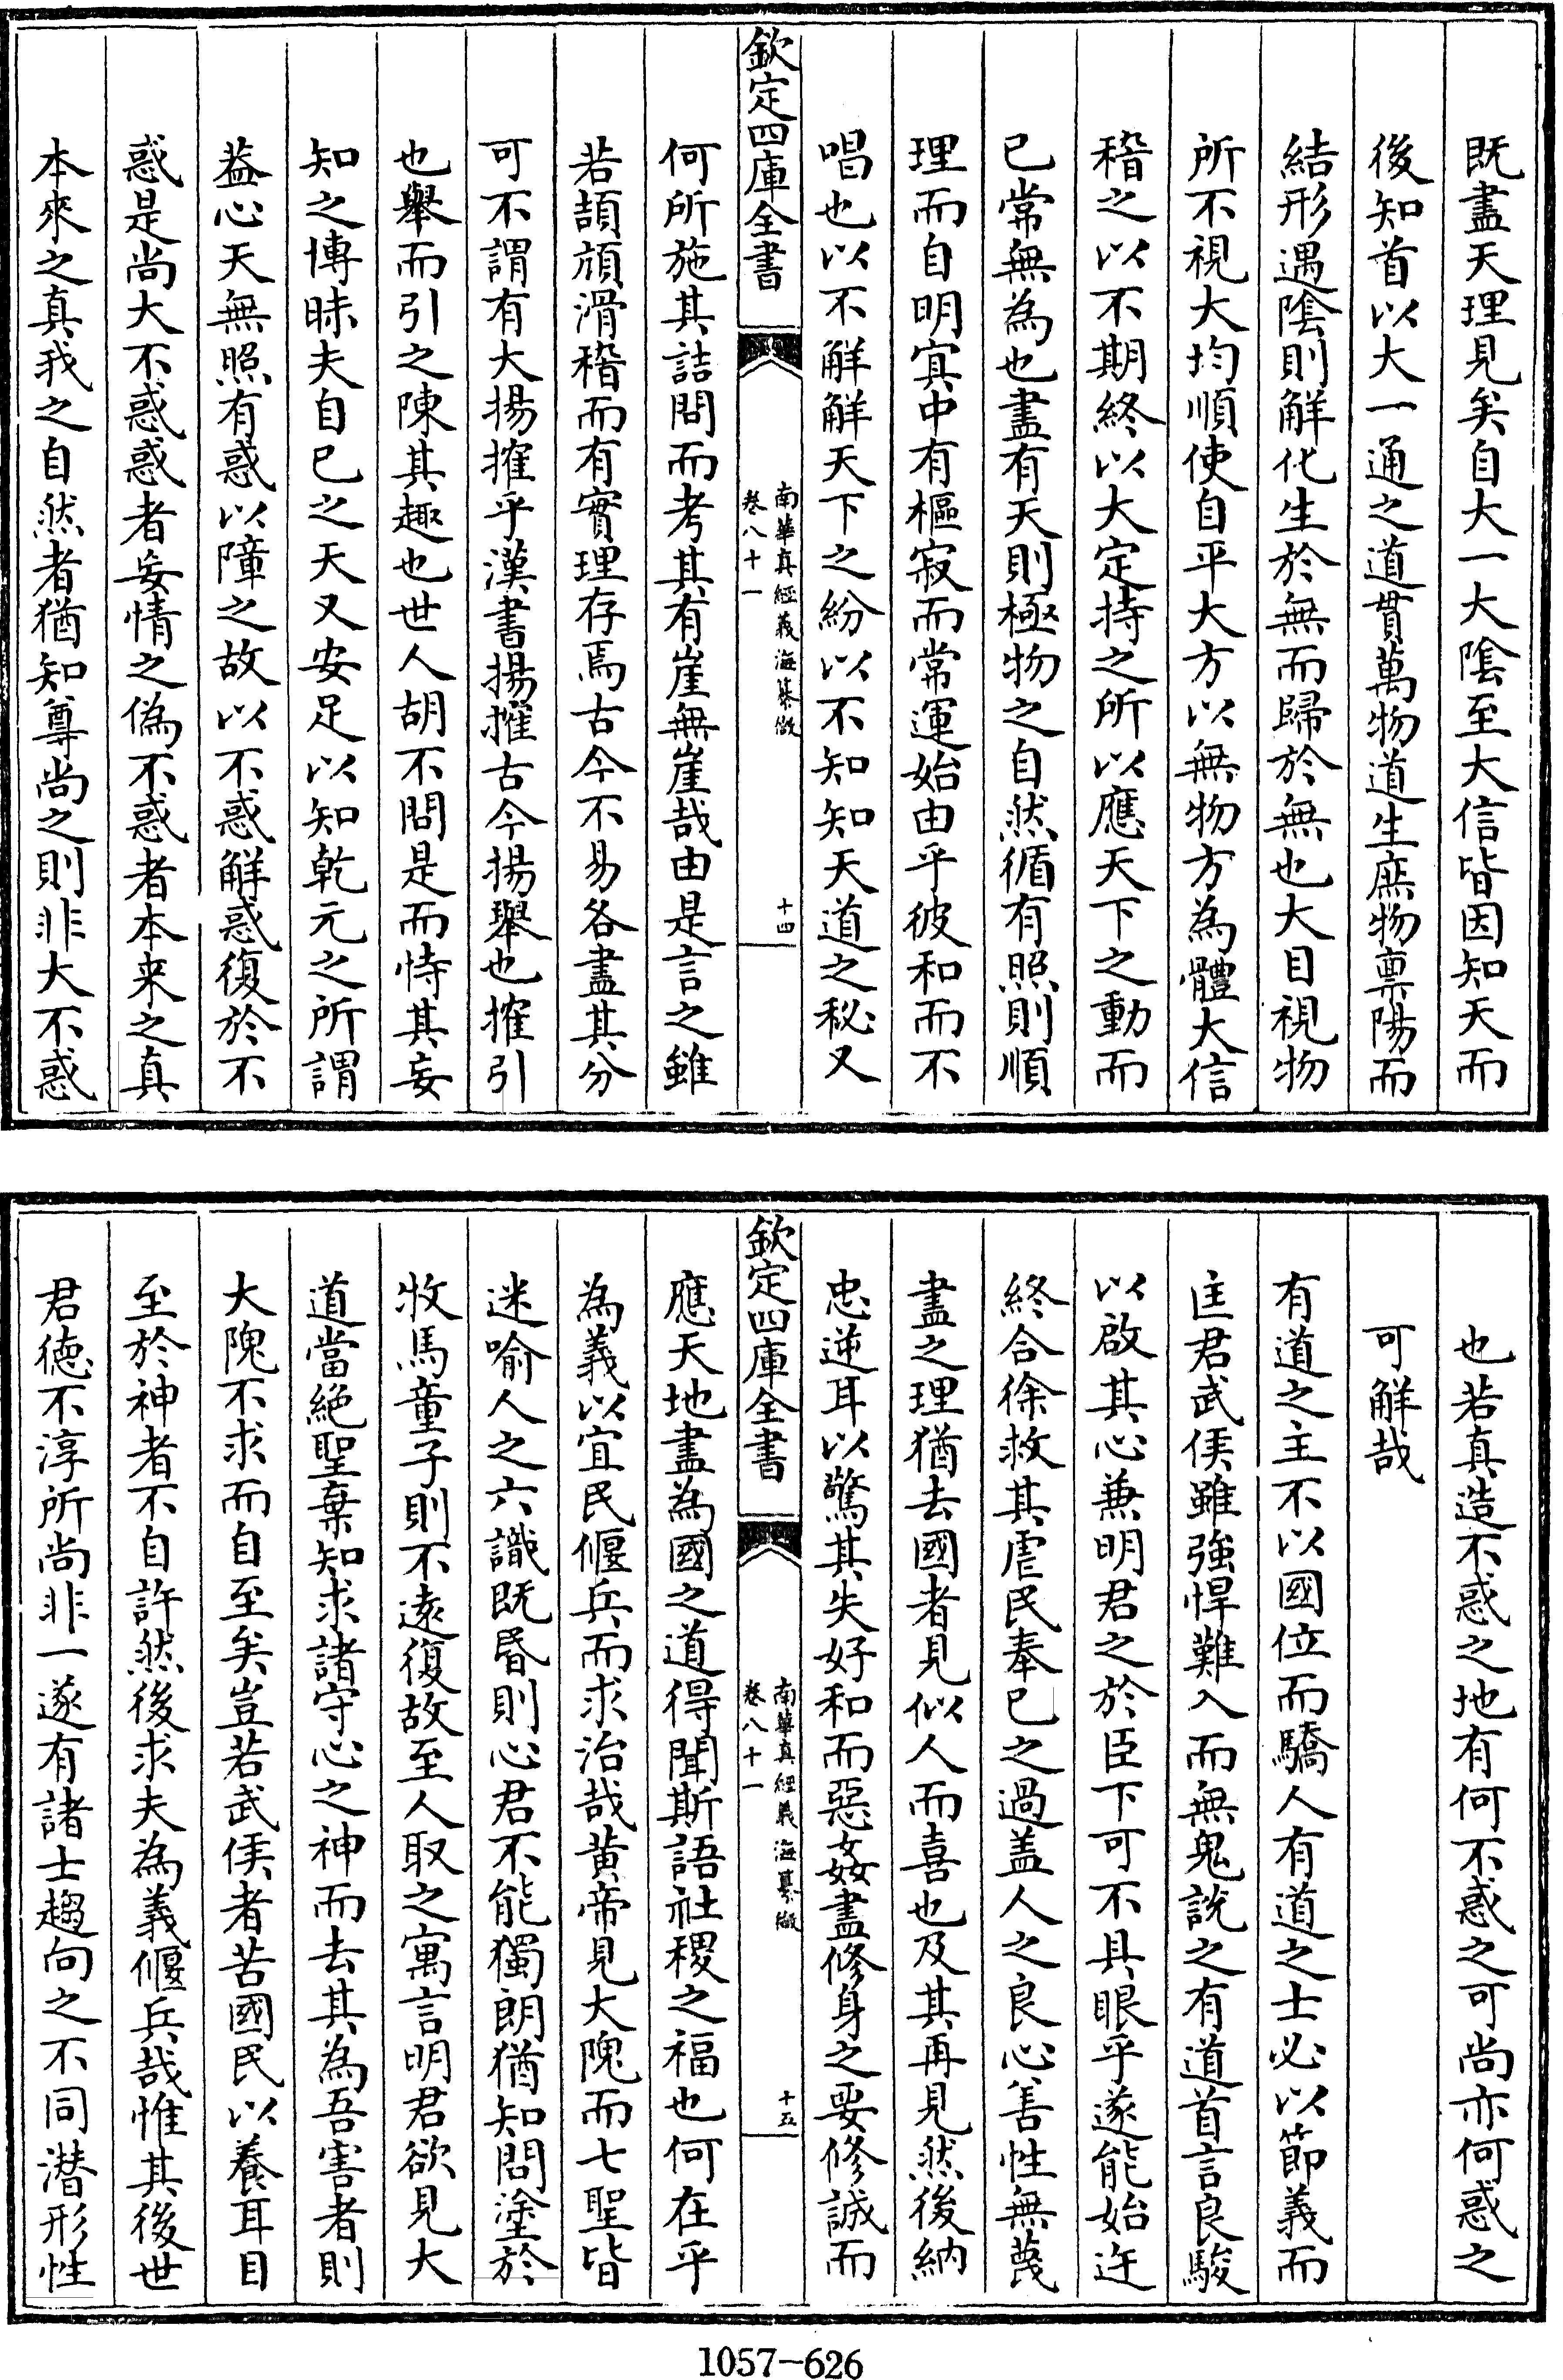 既盡天理見矣自大一大陰至大信皆因知天而
後知首以大一通之道貫萬物道生庶物稟陽而
結形遇陰則解化生於無而歸於無也大目視物
所不視大均順使自平大方以無物方為體大信
稽之以不期終以大定持之所以應天下之動而
已常無為也盡有天則極物之自然循有照則順
理而自明冥中有樞寂而常運始由乎彼和而不
唱也以不解解天下之紛以不知知天道之秘又
欽定四庫全書
南華真經義海纂微
卷八十一
十四
何所施其詰問而考其有崖無崖哉由是言之雖
若頡頏滑稽而有實理存焉古今不易各盡其分
可不謂有大揚搉乎漢書揚搉古今揚舉也搉引
也舉而引之陳其趣也世人胡不問是而恃其妄
知之博昧夫自己之天又安足以知乾元之所謂
葢心天無照有惑以障之故以不惑解惑復於不
惑是尚大不惑惑者妄情之偽不惑者本来之真
本來之真我之自然者猶知尊尚之則非大不惑
也若真造不惑之地有何不惑之可尚亦何惑之
可解哉
有道之主不以國位而驕人有道之士必以節義而
匡君武侯雖強悍難入而無鬼說之有道首言良駿
以啟其心兼明君之於臣下可不具眼乎遂能始迕
終合徐救其虐民奉已之過盖人之良心善性無蔑
盡之理猶去國者見似人而喜也及其再見然後納
忠逆耳以驚其失好和而惡姦盡修身之要修誠而
欽定四庫全書
南華真經義海纂微
卷八十一
十五
應天地盡為國之道得聞斯語社稷之福也何在乎
為義以宜民偃兵而求治哉黄帝見大隗而七聖皆
迷喻人之六識既昏則心君不能獨朗猶知問塗於
牧馬童子則不遠復故至人取之寓言明君欲見大
道當絶聖棄知求諸守心之神而去其為吾害者則
大隗不求而自至矣豈若武侯者苦國民以養耳目
至於神者不自許然後求夫為義偃兵哉惟其後世
君徳不淳所尚非一遂有諸士趨向之不同潛形性
1057-626